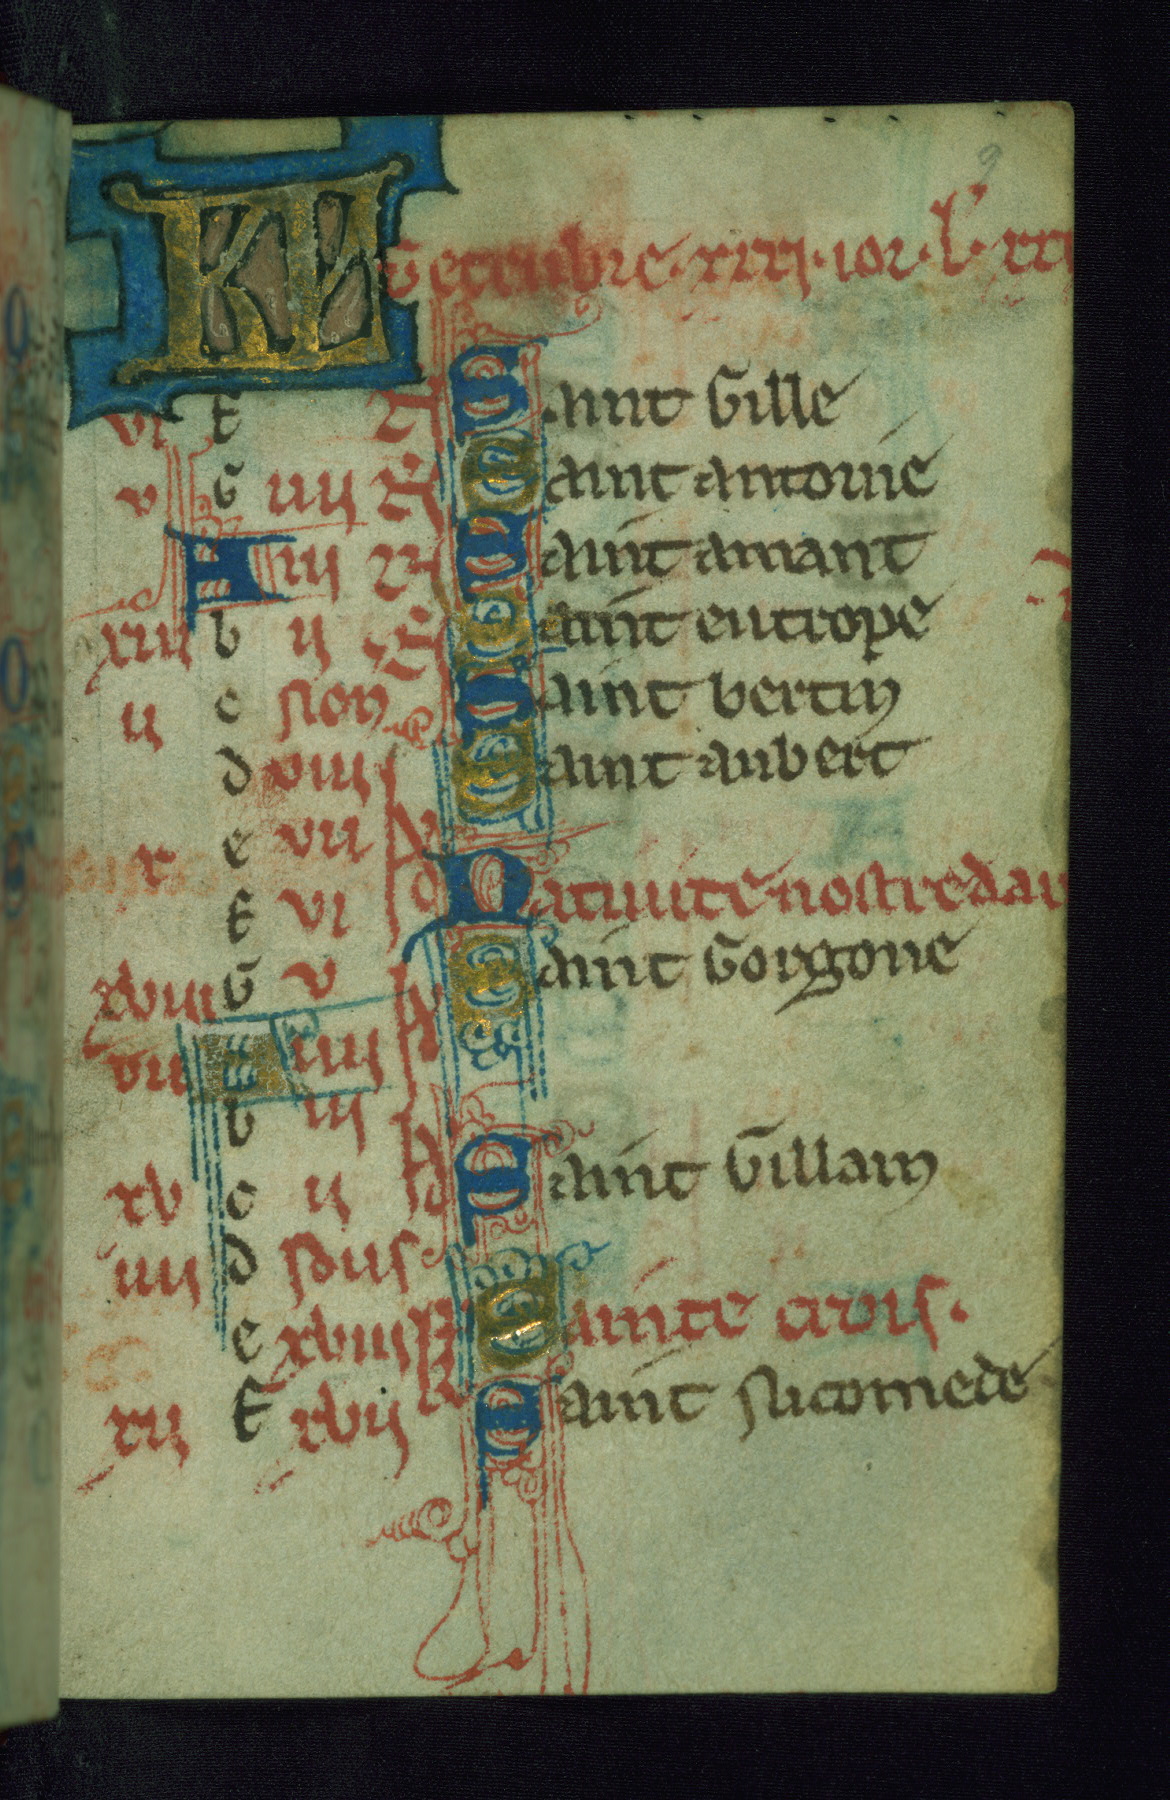 9
KL Setembre · xxxj · ior · l'
vi f Saint Gille
v G iiij Saint antoine
A iij Saint amant
xiij b ij Saint eutrope
ij c non Saint bertin
d viij Saint aubert
x e vij
f vi Natiuite nostre dam
xviij G v Saint Gorgone
vij A iiij
b iij
xv c ij Saint Gillain
iiij d idus
e xviij Sainte crois.
xij f xvij Saint nicomede